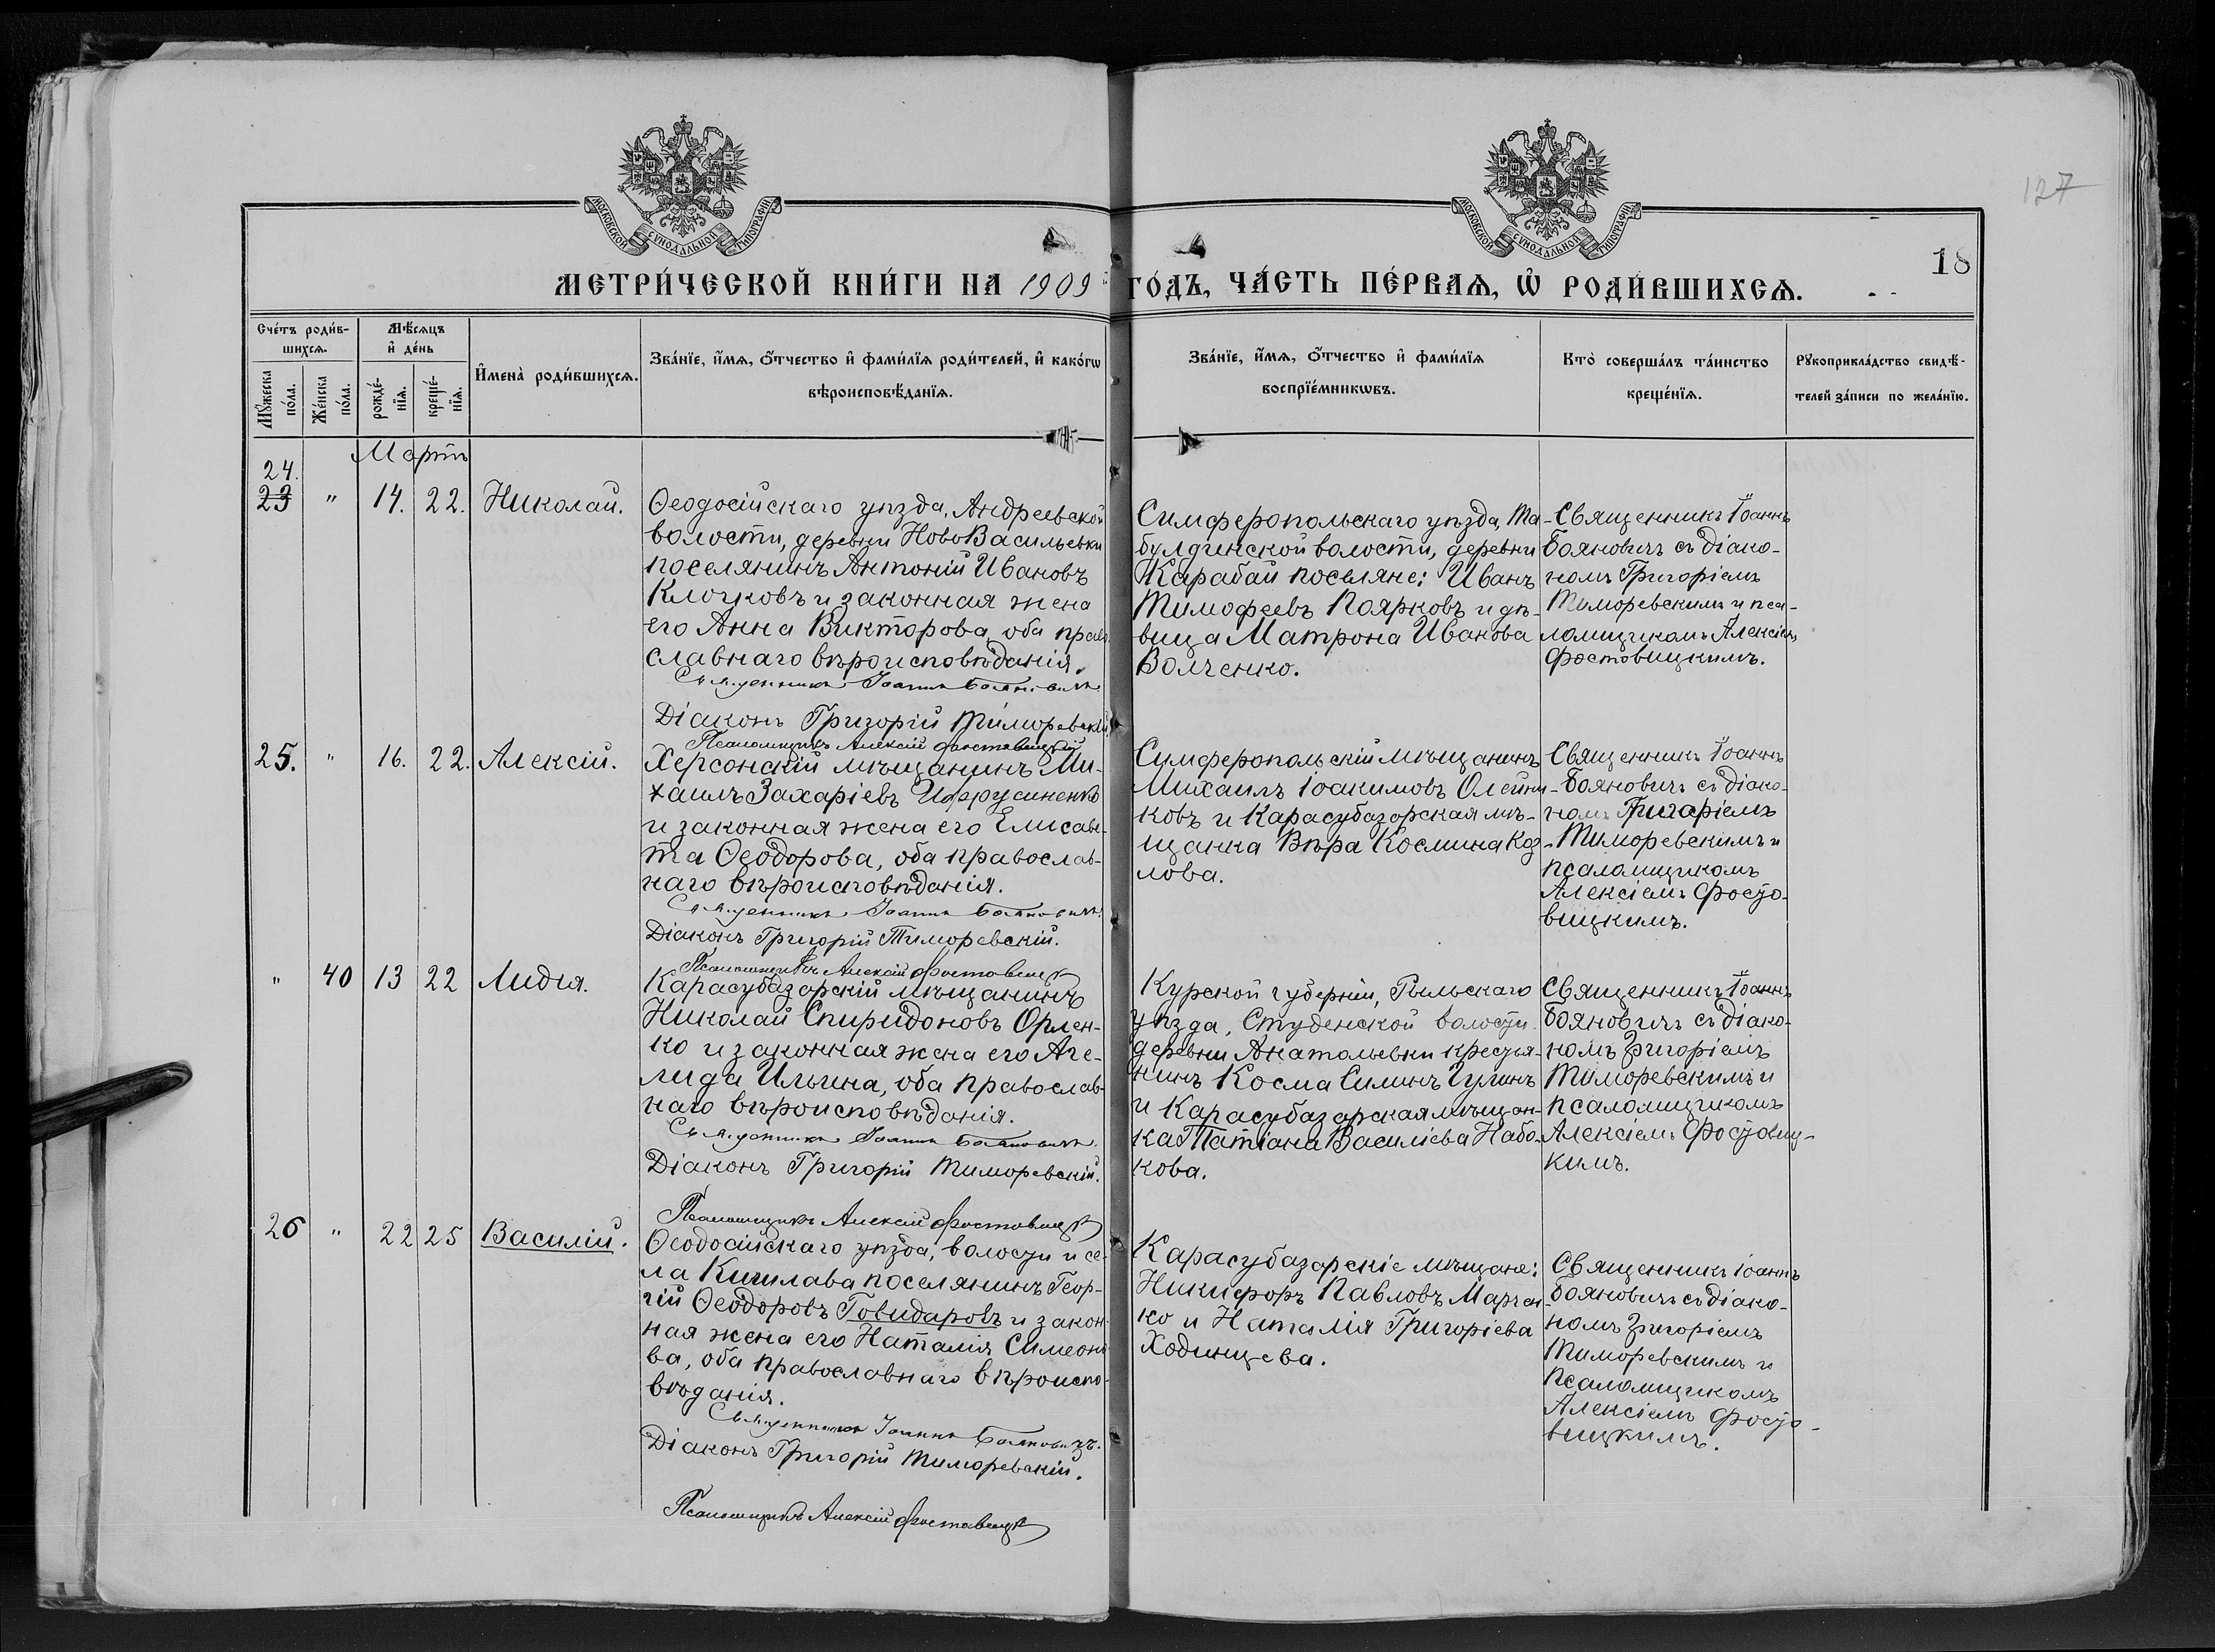 127
МОСКОВСКОЙ СѴНОДАЛЬНОЙ ТИПОГРАФІИ
МОСКОВСКОЙ СѴНОДАЛЬНОЙ ТИПОГРАФІИ
18
МЕТРИ́ЧЕСКОЙ КНИ́ГИ НА 1909 ГО́ДЪ, ЧА́СТЬ ПЕ́РВАѦ, Ѽ РОДИ́ВШИХСѦ.
Сче́тъ роди́в-
шихсѧ.
Мꙋ́жеска по́ла.
Же́нска по́ла.
Мѣ́сѧцъ
и҆ де́нь
рожде́-нїѧ.
креще́-нїѧ.
И҆мена̀ роди́вшихсѧ.
Зва́нїе, и҆́мѧ, ѻ҆́тчество и҆ фами́лїѧ роди́телей, и҆ како́гѡ
вѣроисповѣ́данїѧ.
Зва́нїе, и҆́мѧ, ѻ҆́тчество и҆ фами́лїѧ
воспрїе́мникѡвъ.
Кто̀ соверша́лъ та́инство
креще́нїѧ.
Рꙋкоприкла́дство свидѣ́-
телей за́писи по жела́нїю.
Мартъ
24.
23 " 14. 22. Николай.
Ѳеодосійскаго уѣзда, Андреевской
волости, деревни НовоВасильевки
поселянинъ Антоній Ивановъ
Клочковъ и законная жена
его Анна Викторова, оба право
славнаго вѣроисповѣданія.
Священникъ Іоаннъ Бояновичъ
Діаконъ Григорій Тиморевскій
Псаломщикъ Алексій Фостовицкій
Симферопольскаго уѣзда, Та-
булдинской волости, деревни
Карабай поселяне: Иванъ
Тимофеевъ Поярковъ и дѣ-
вица Матрона Иванова
Волченко.
Священникъ Іоаннъ
Бояновичъ съ діако-
номъ Григоріемъ
Тиморевскимъ и пса-
ломщикомъ Алексіемъ
Фостовицкимъ.
25. " 16. 22. Алексій.
Херсонскій мѣщанинъ Ми-
хаилъ Захаріевъ
и законная жена его Елисаве-
та Ѳеодорова, оба православ-
наго вѣроисповѣданія.
Священникъ Іоаннъ Бояновичъ
Діаконъ Григорій Тиморевскій.
Псаломщикъ Алексій Фостовицкій
Симферопольскій мѣщанинъ
Михаилъ Іоакимовъ Олейни-
ковъ и Карасубазорская мѣ-
щанка Вѣра Космина Коз-
лова.
Священникъ Іоаннъ
Бояновичъ съ діако-
номъ Григоріемъ
Тиморевскимъ и
псаломщикомъ
Алексіемъ Фосто-
вицкимъ.
" 40 13 22 Лидія.
Карасубазорскій мѣщанинъ
Николай Спиридоновъ Орлен-
ко и законная жена его Аге-
лида Ильина, оба православ-
наго вѣроисповѣданія.
Священникъ Іоаннъ Бояновичъ.
Діаконъ Григорій Тиморевскій.
Псаломщикъ Алексій Фостовицкій
Курской губерніи, Рыльскаго
уѣзда, Студенской волости
деревни Анатольевки крестья-
нинъ Косма Силинъ
и Карасубазорская мѣщан-
ка Татіана Василіева Набо-
кова.
Священникъ Іоаннъ
Бояновичъ съ діако-
номъ Григоріемъ
Тиморевскимъ и
псаломщикомъ
Алексіемъ Фостовиц-
кимъ.
26 " 22 25 Василій.
Ѳеодосійскаго уѣзда, волости и се-
ла Кишлава поселянинъ Геор-
гій Ѳеодоровъ Говидаровъ и закон-
ная жена его Наталія Симеоно
ва, оба православнаго вѣроиспо-
вѣданія.
Священникъ Іоаннъ Бояновичъ.
Діаконъ Григорій Тиморевскій.
Псаломщикъ Алексій Фостовицкій
Карасубазорскіе мѣщане:
Никифоръ Павловъ Марчен-
ко и Наталія Григоріева
Ходинцева.
Священникъ Іоаннъ
Бояновичъ съ діако-
номъ Григоріемъ
Тиморевскимъ и
псаломщикомъ
Алексіемъ Фосто-
вицкимъ.